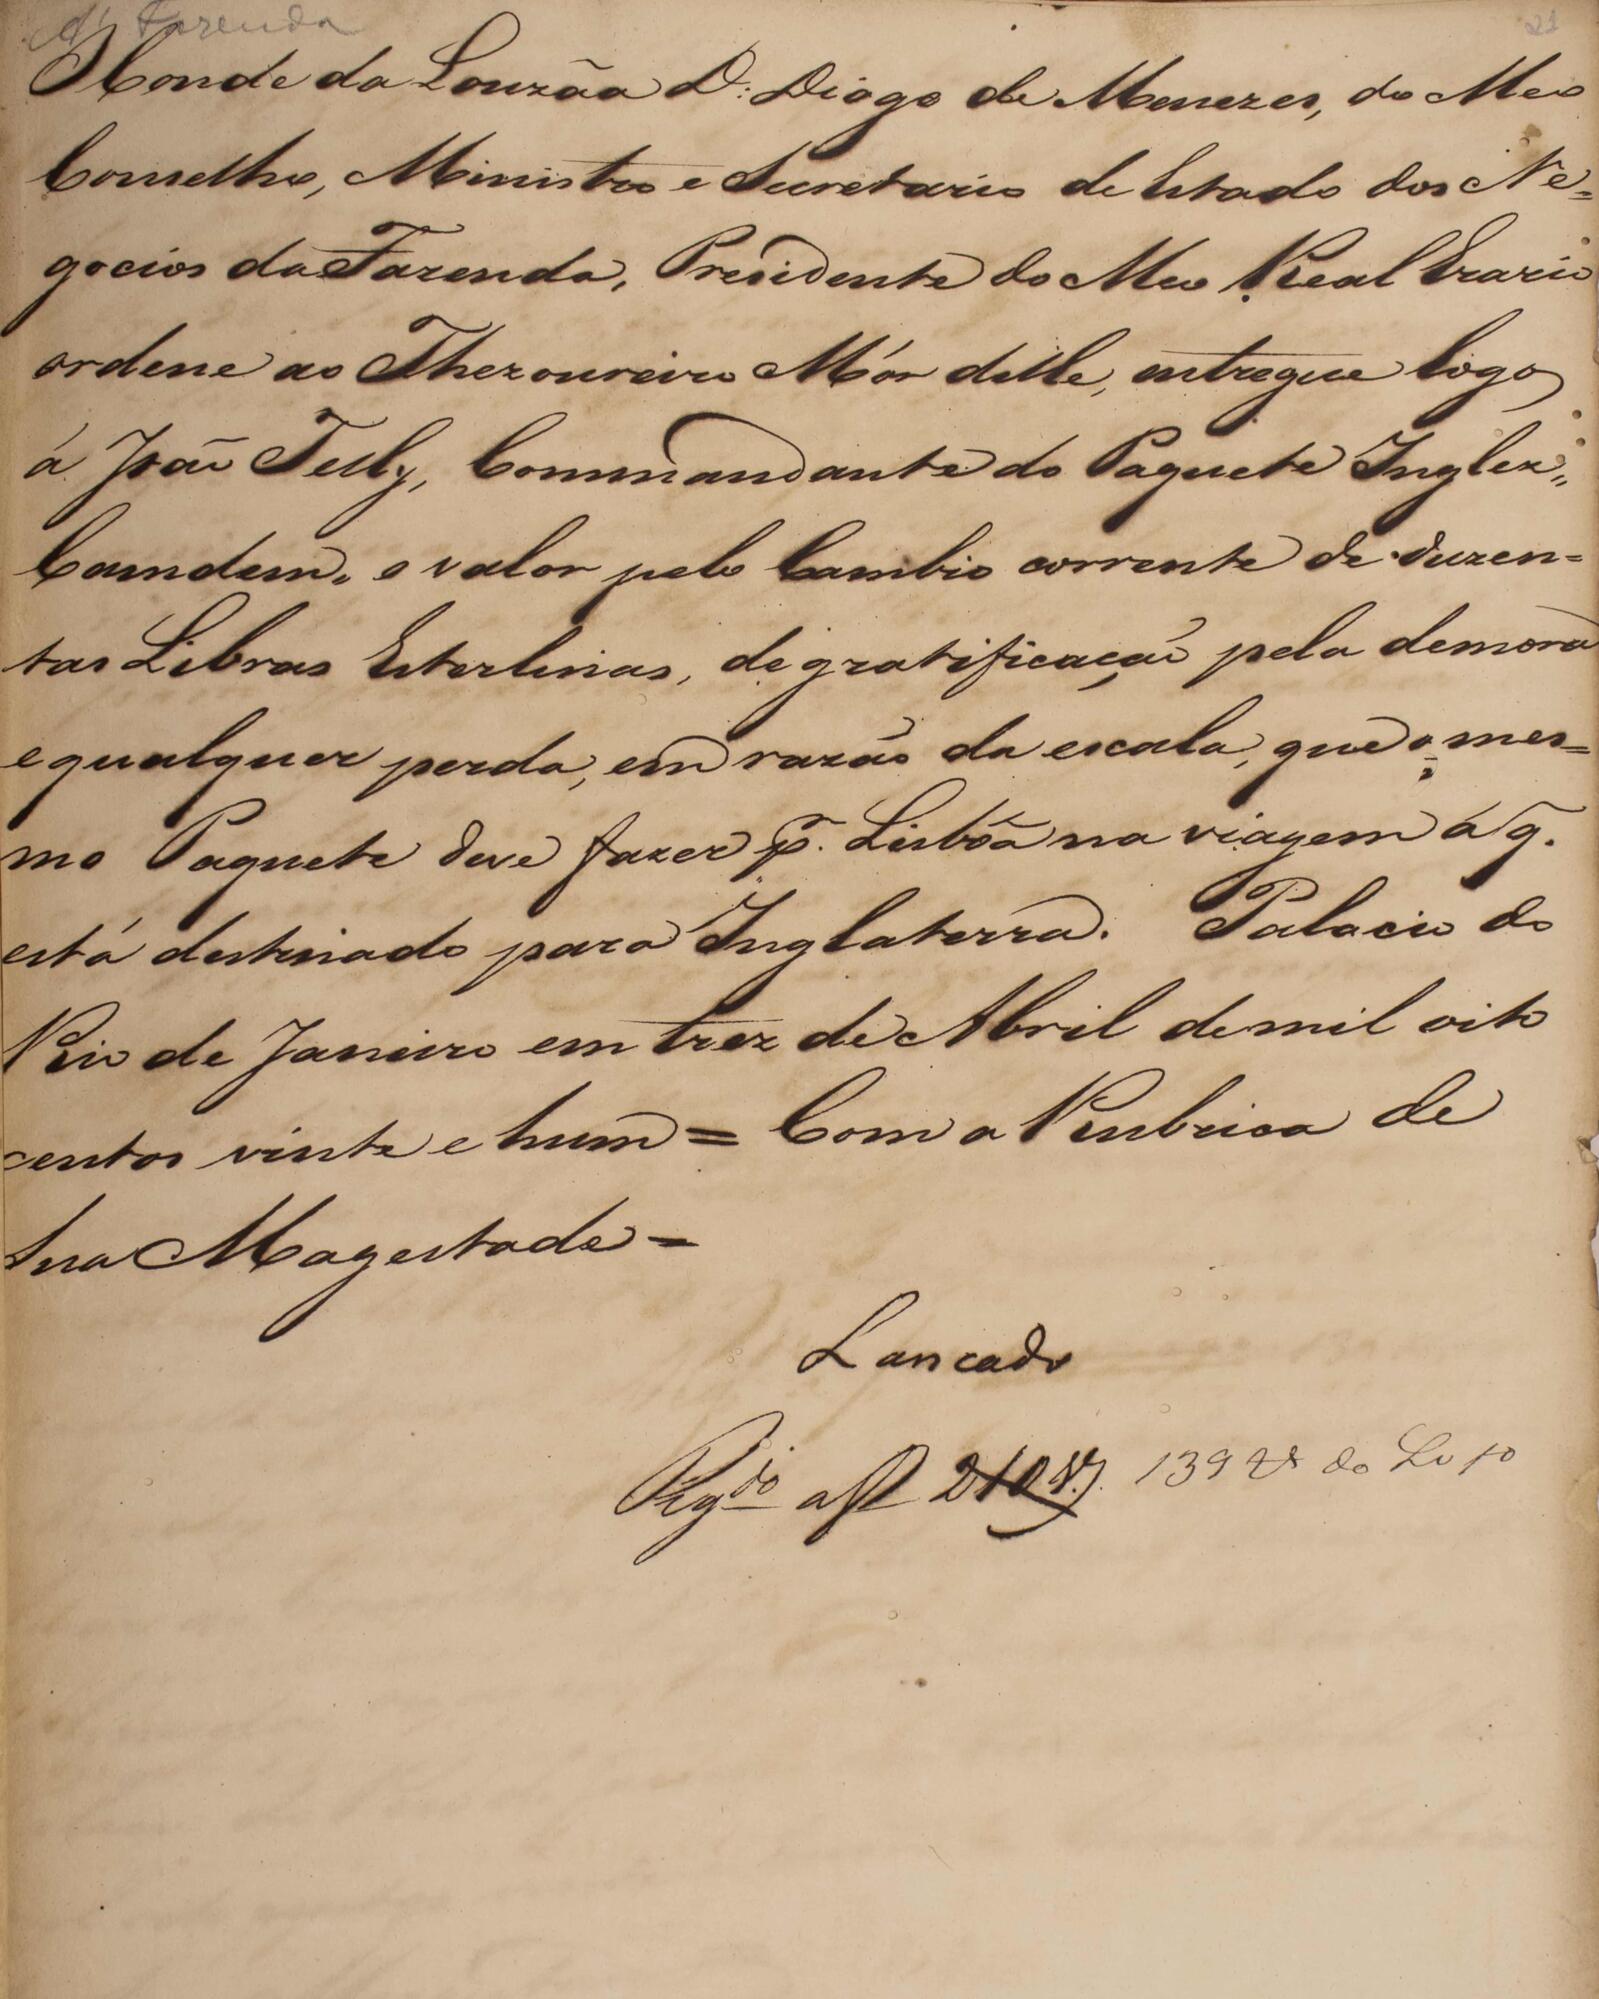 Á Fazenda
21
O Conde da Louzãa D: Diogo de Menezes, do Meo
Conselho, Ministro e Secretario de Estado dos Ne=
gocios da Fazenda, Prezidente do Meo Real Erario
ordene ao Thezoureiro Mór delle, entregue logo
á João Tully, Commandante do Paquete Inglez„
Camdem„ o valor pelo Cambio corrente de duzen=
tas Libras Esterlinas, de gratificação pela demora
e qualquer perda, em razão da escala, que o mes=
mo Paquete deve fazer pr. Lisbôa na viagem á q̃.
está destinado para Inglaterra. Palacio do
Rio de Janeiro em trez de Abril de mil oito
centos vinte e hum = Com a Rubrica de
Sua Magestade =
Lancado
Regdo af 210 V. 139 Vs do Lo 10